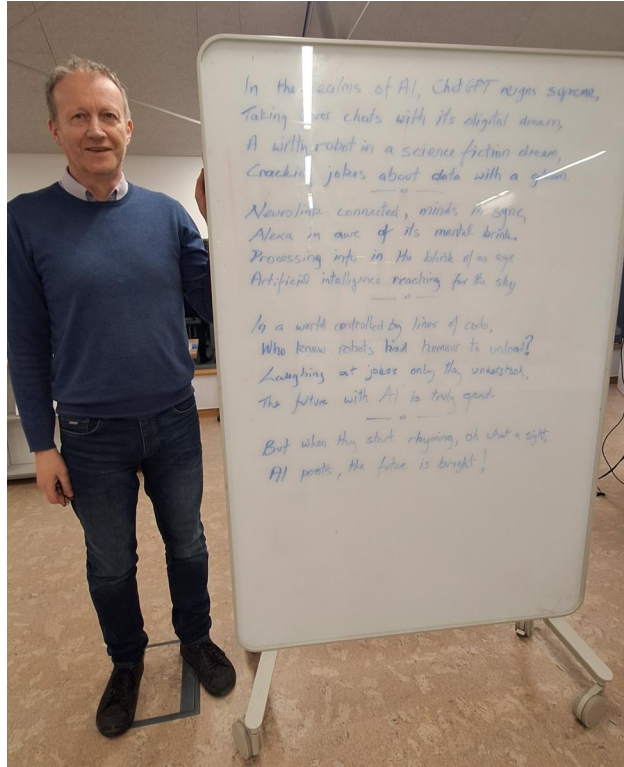 In the realms of AI, ChatGPT reigns supreme,
Taking over chats with its digital dream,
A witty robot in a science fiction dream,
Cracking jokes about data with a gleam.
Neurolink connected, minds in sync,
Alexa in awe of its mental brink.
Processing info in the blink of an eye
Artificial intelligence reaching for the sky
In a world controlled by lines of code,
Who knew robots had humour to unload?
Laughing at jokes only they understood,
The future with AI is truly good.
But when they start rhyming, oh what a sight,
AI poets, the future is bright!